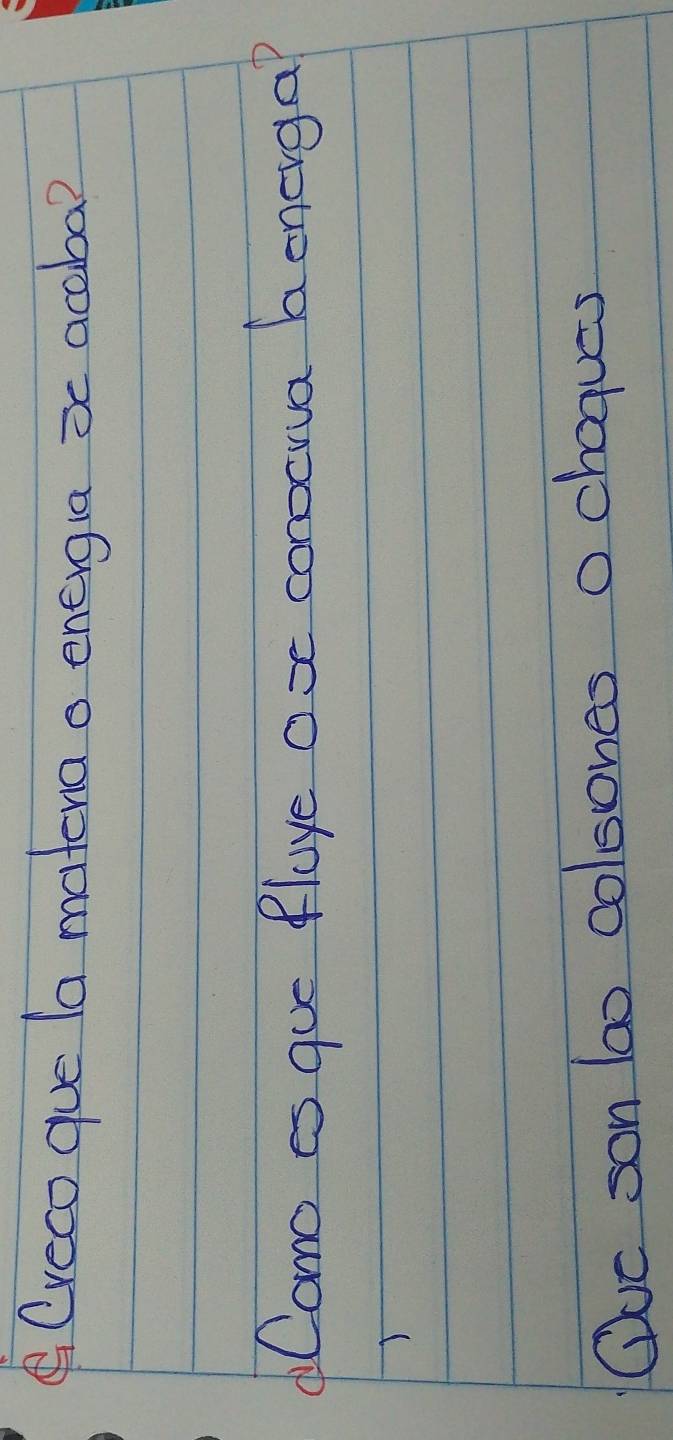 ¿Crees que la materia o energia se acaba?
¿Como es que fluye o se conserva la energa?
Que son las colisiones o choques